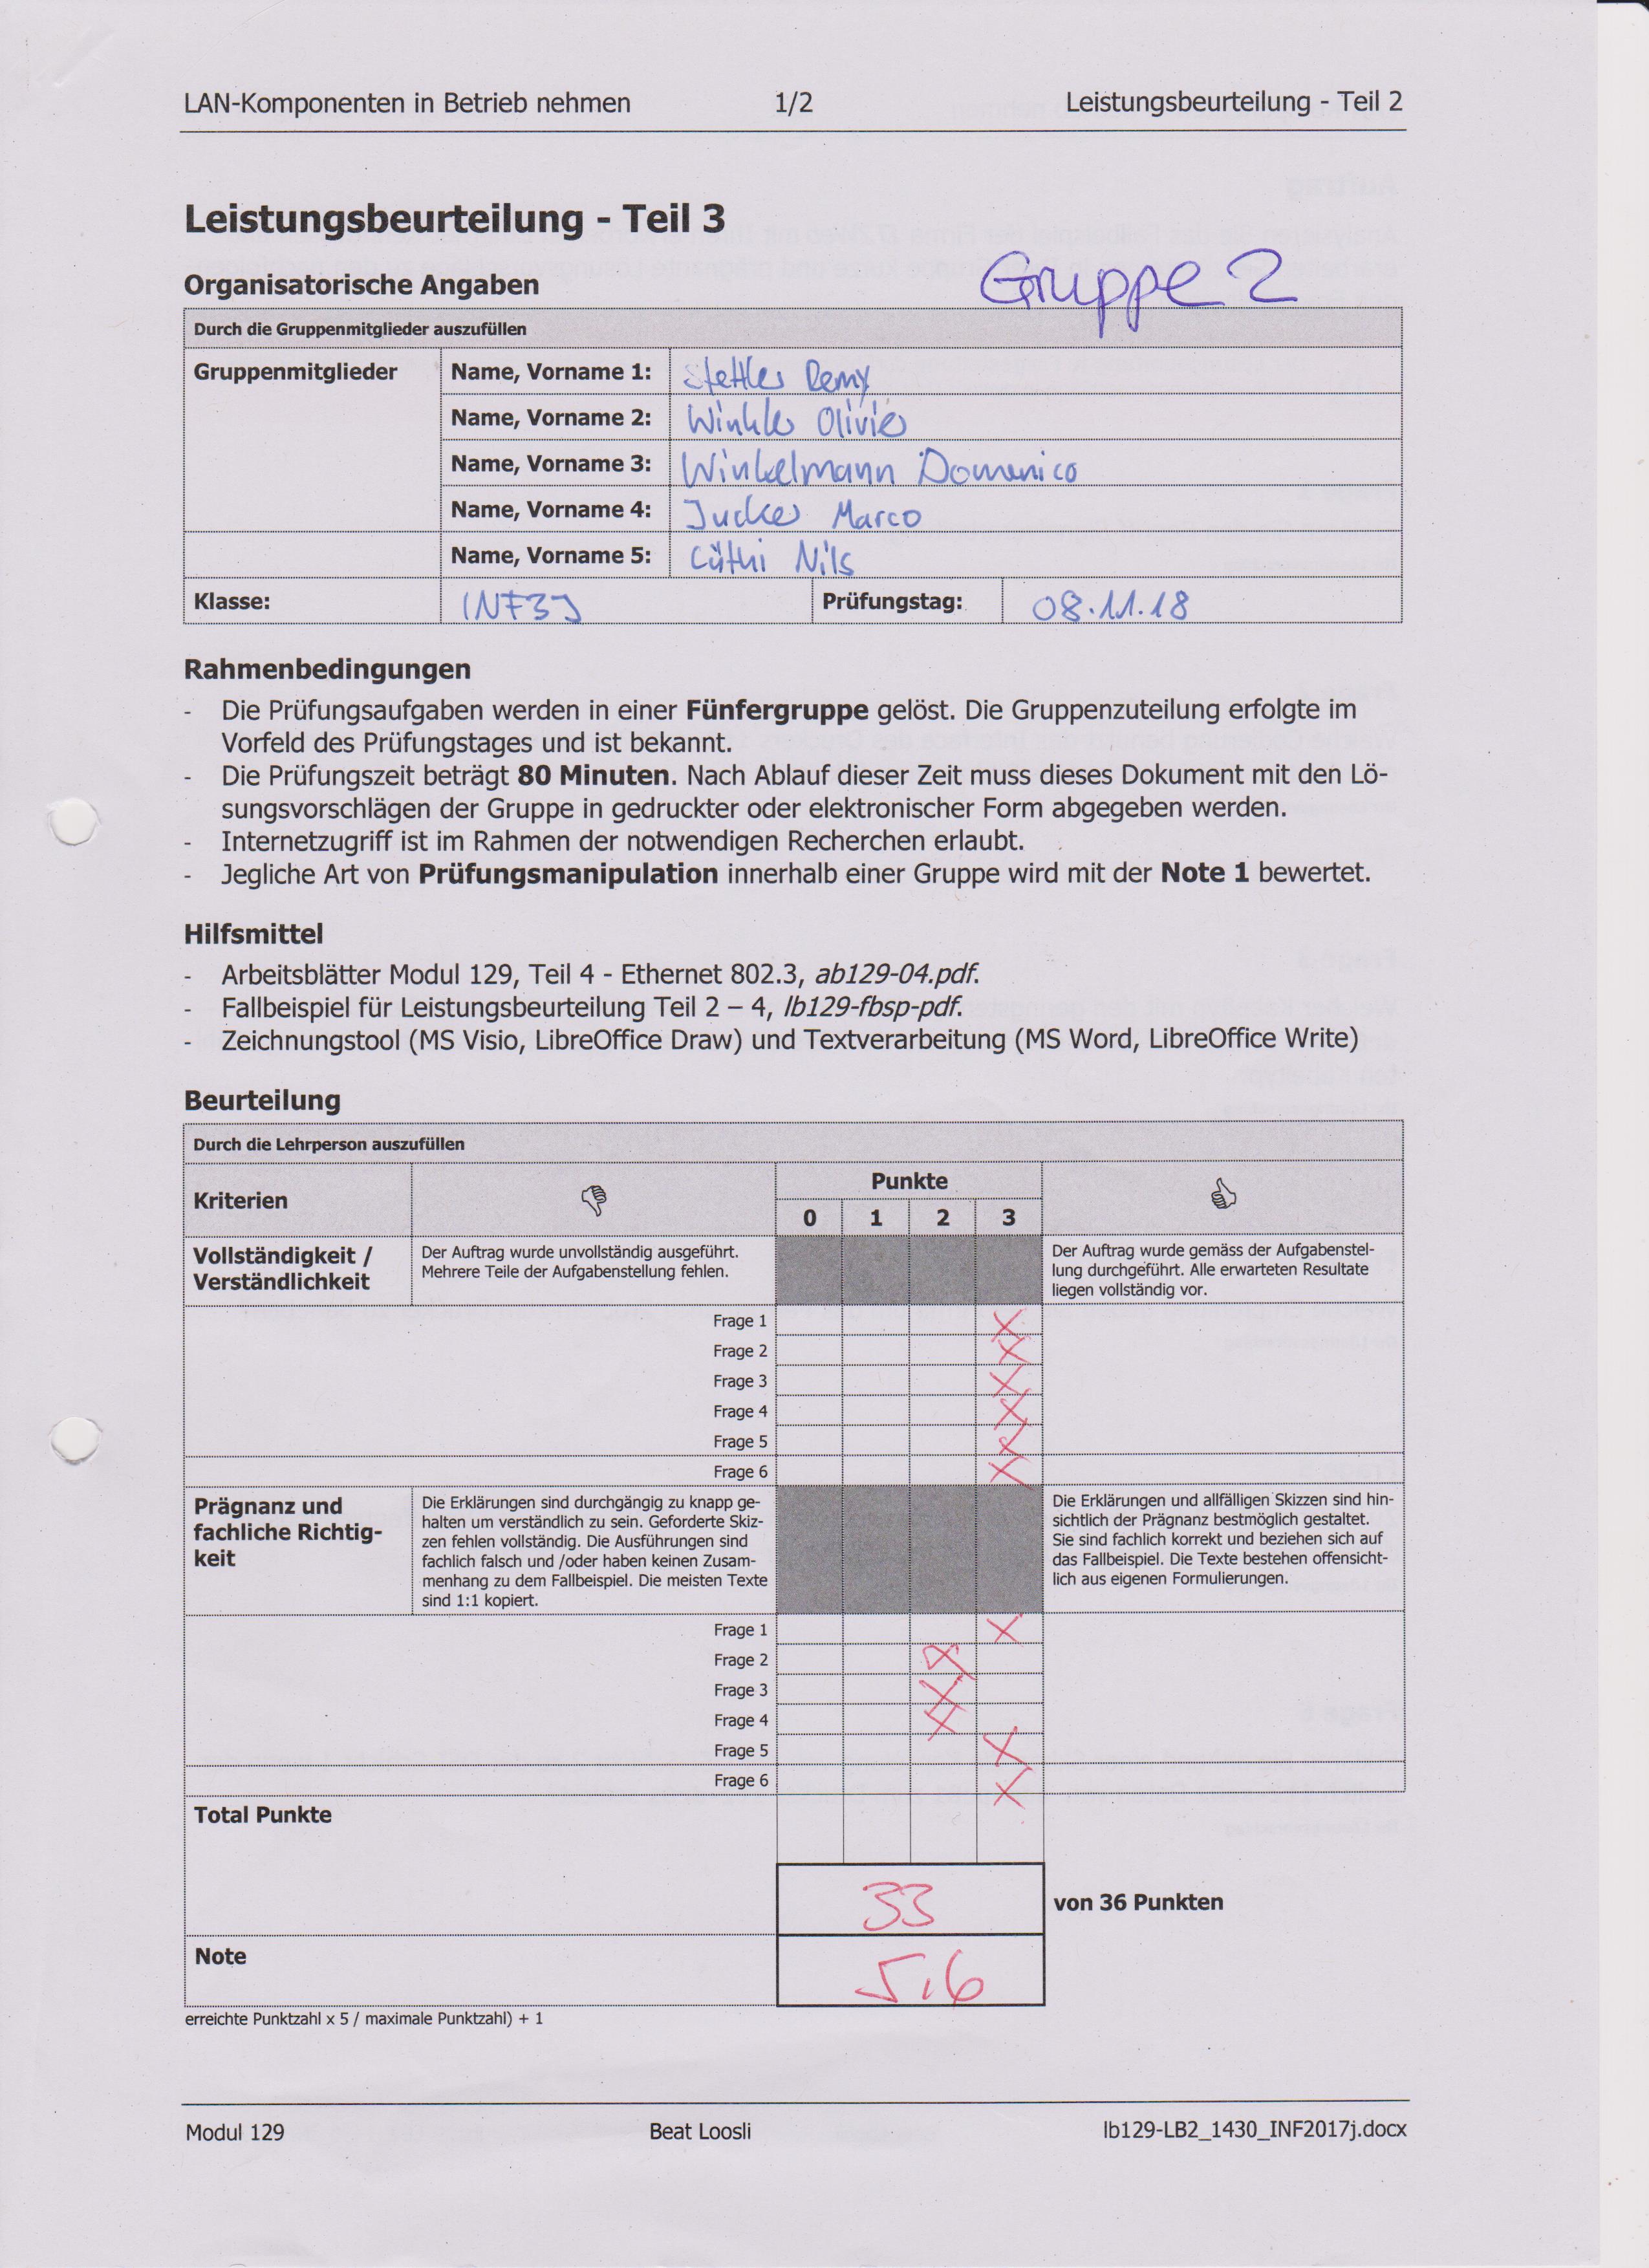 LAN-Komponenten in Betrieb nehmen 1/2 Leistungsbeurteilung - Teil 2
Leistungsbeurteilung - Teil 3
Organisatorische Angaben
Gruppe 2
Durch die Gruppenmitglieder auszufüllen
Gruppenmitglieder Name, Vorname 1: Stettler Remy
Name, Vorname 2: Winkler Olivier
Name, Vorname 3: Winkelmann Domenico
Name, Vorname 4: Jucker Marco
Name, Vorname 5: Lüthi Nils
Klasse: INF3J Prüfungstag: 08.11.18
Rahmenbedingungen
- Die Prüfungsaufgaben werden in einer Fünfergruppe gelöst. Die Gruppenzuteilung erfolgte im
Vorfeld des Prüfungstages und ist bekannt.
- Die Prüfungszeit beträgt 80 Minuten. Nach Ablauf dieser Zeit muss dieses Dokument mit den Lö-
sungsvorschlägen der Gruppe in gedruckter oder elektronischer Form abgegeben werden.
- Internetzugriff ist im Rahmen der notwendigen Recherchen erlaubt.
- Jegliche Art von Prüfungsmanipulation innerhalb einer Gruppe wird mit der Note 1 bewertet.
Hilfsmittel
- Arbeitsblätter Modul 129, Teil 4 - Ethernet 802.3, ab129-04.pdf.
- Fallbeispiel für Leistungsbeurteilung Teil 2 – 4, lb129-fbsp-pdf.
- Zeichnungstool (MS Visio, LibreOffice Draw) und Textverarbeitung (MS Word, LibreOffice Write)
Beurteilung
Durch die Lehrperson auszufüllen
Kriterien Punkte
0 1 2 3
Vollständigkeit /
Verständlichkeit
Der Auftrag wurde unvollständig ausgeführt.
Mehrere Teile der Aufgabenstellung fehlen.
Der Auftrag wurde gemäss der Aufgabenstel-
lung durchgeführt. Alle erwarteten Resultate
liegen vollständig vor.
Frage 1
Frage 2
Frage 3
Frage 4
Frage 5
Frage 6
Prägnanz und
fachliche Richtig-
keit
Die Erklärungen sind durchgängig zu knapp ge-
halten um verständlich zu sein. Geforderte Skiz-
zen fehlen vollständig. Die Ausführungen sind
fachlich falsch und /oder haben keinen Zusam-
menhang zu dem Fallbeispiel. Die meisten Texte
sind 1:1 kopiert.
Die Erklärungen und allfälligen Skizzen sind hin-
sichtlich der Prägnanz bestmöglich gestaltet.
Sie sind fachlich korrekt und beziehen sich auf
das Fallbeispiel. Die Texte bestehen offensicht-
lich aus eigenen Formulierungen.
Frage 1
Frage 2
Frage 3
Frage 4
Frage 5
Frage 6
Total Punkte
33 von 36 Punkten
Note 5,6
erreichte Punktzahl x 5 / maximale Punktzahl) + 1
Modul 129 Beat Loosli lb129-LB2_1430_INF2017j.docx